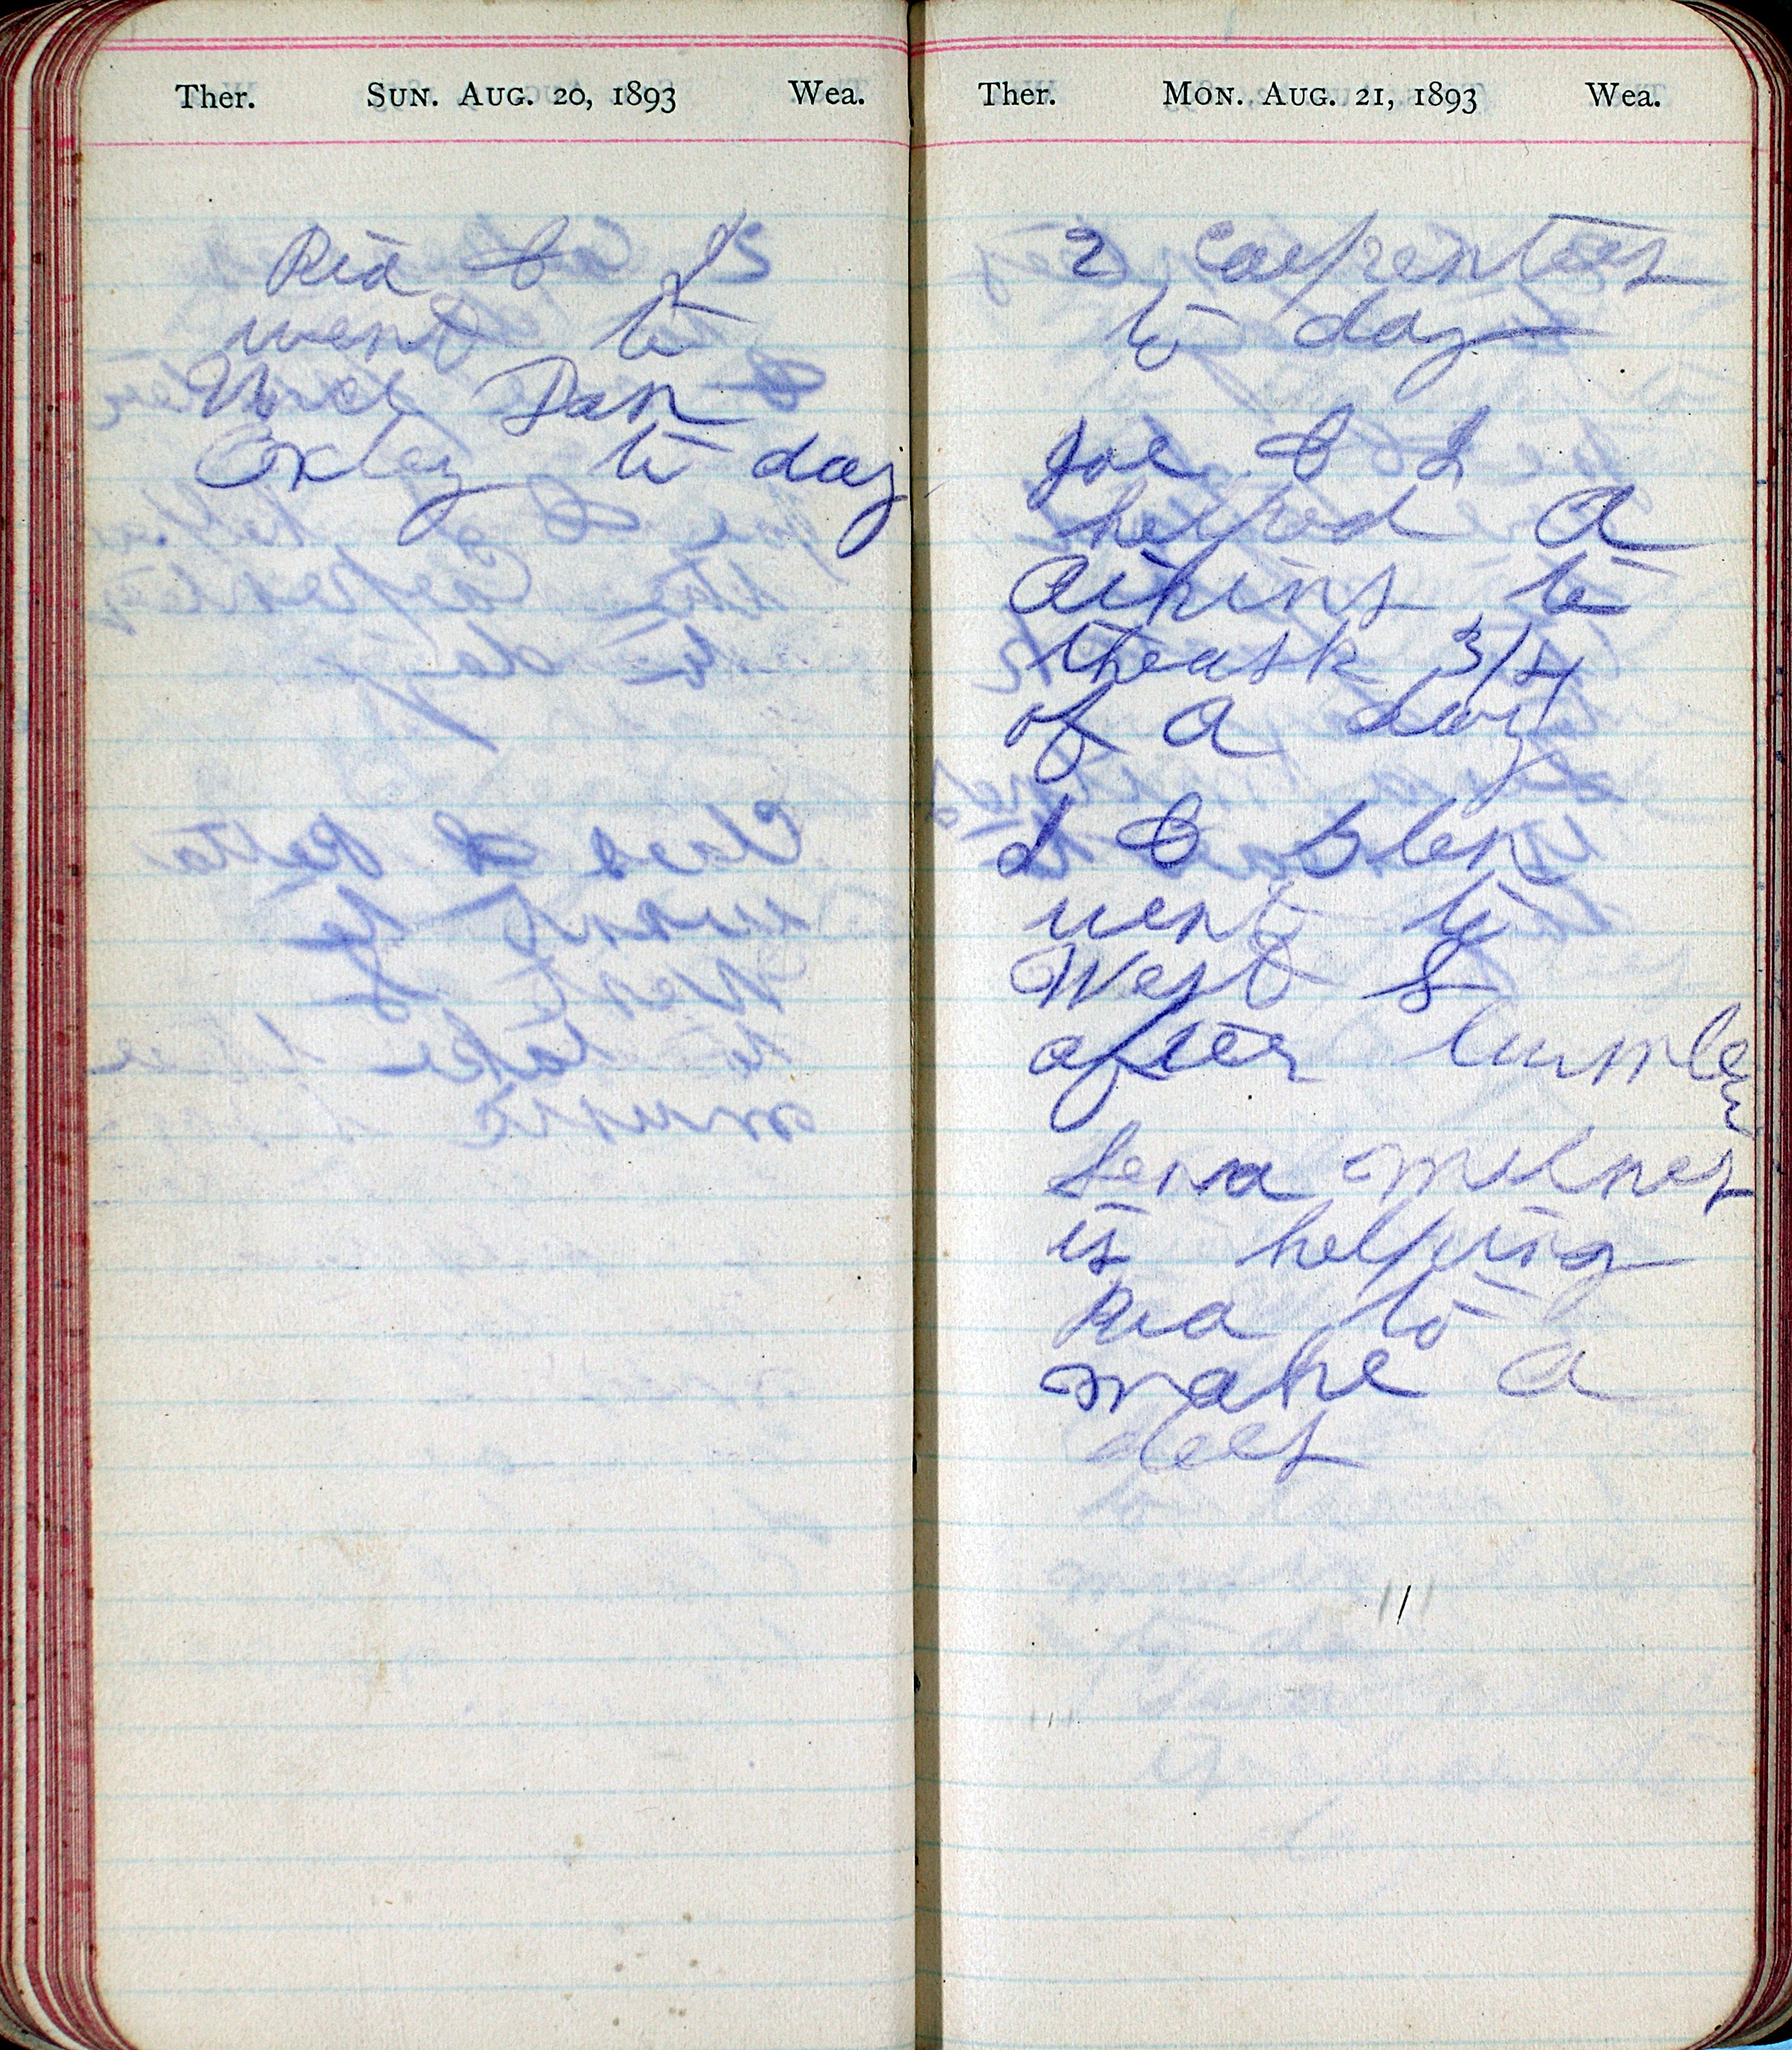 Ther. SUN. AUG. 20, 1893 Wea.
Ria &
went to
Uncl Dan
Oxley to day
Ther. MON. AUG. 21, 1893 Wea.
2 Carpenters
to day
Joe & I
helped A
to
thrash 3/4
of a day
I & Glen
went to
West
after lumber
Lena Milnes
is helping
Ria to
make a